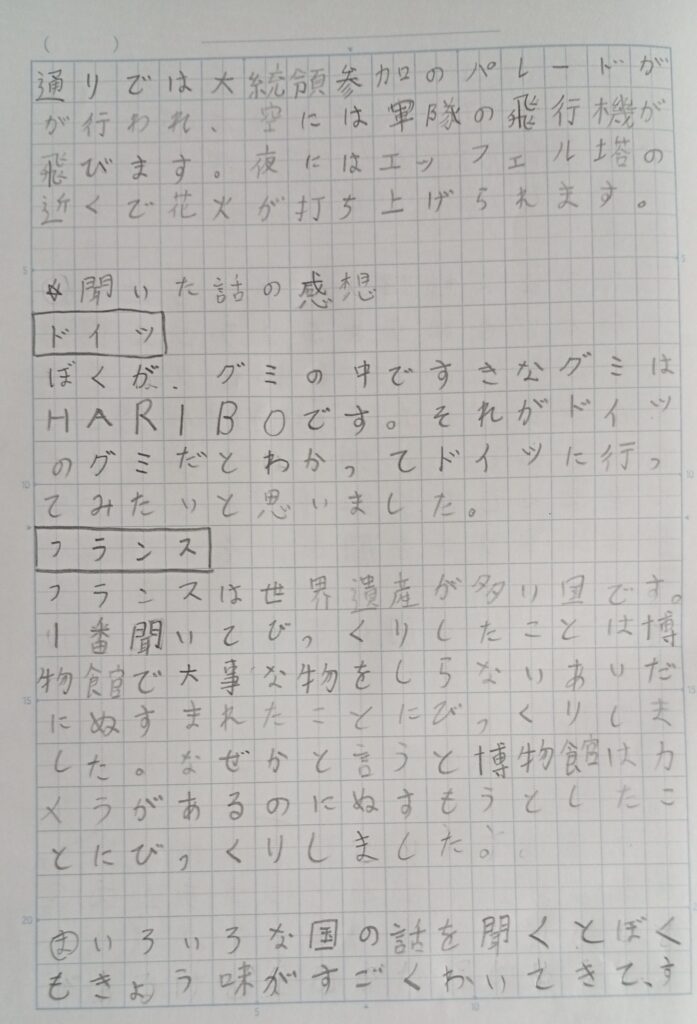 通りでは大統領参加のパレードが
が行われ、空には軍隊の飛行機が
飛びます。夜にはエッフェル塔の
近くで花火が打ち上げられます。
☆聞いた話の感想
ドイツ
ぼくが、グミの中ですきなグミは
HARIBOです。それがドイツ
のグミだとわかってドイツに行っ
てみたいと思いました。
フランス
フランスは世界遺産が多い国です。
1番聞いてびっくりしたことは博
物館で大事な物をしらないあいだ
にぬすまれたことにびっくりしま
した。なぜかと言うと博物館はカ
メラがあるのにぬすもうとしたこ
とにびっくりしました。
まいろいろな国の話を聞くとぼく
もきょう味がすごくわいてきて、す
5
10
15
20
5
10
15
5
10